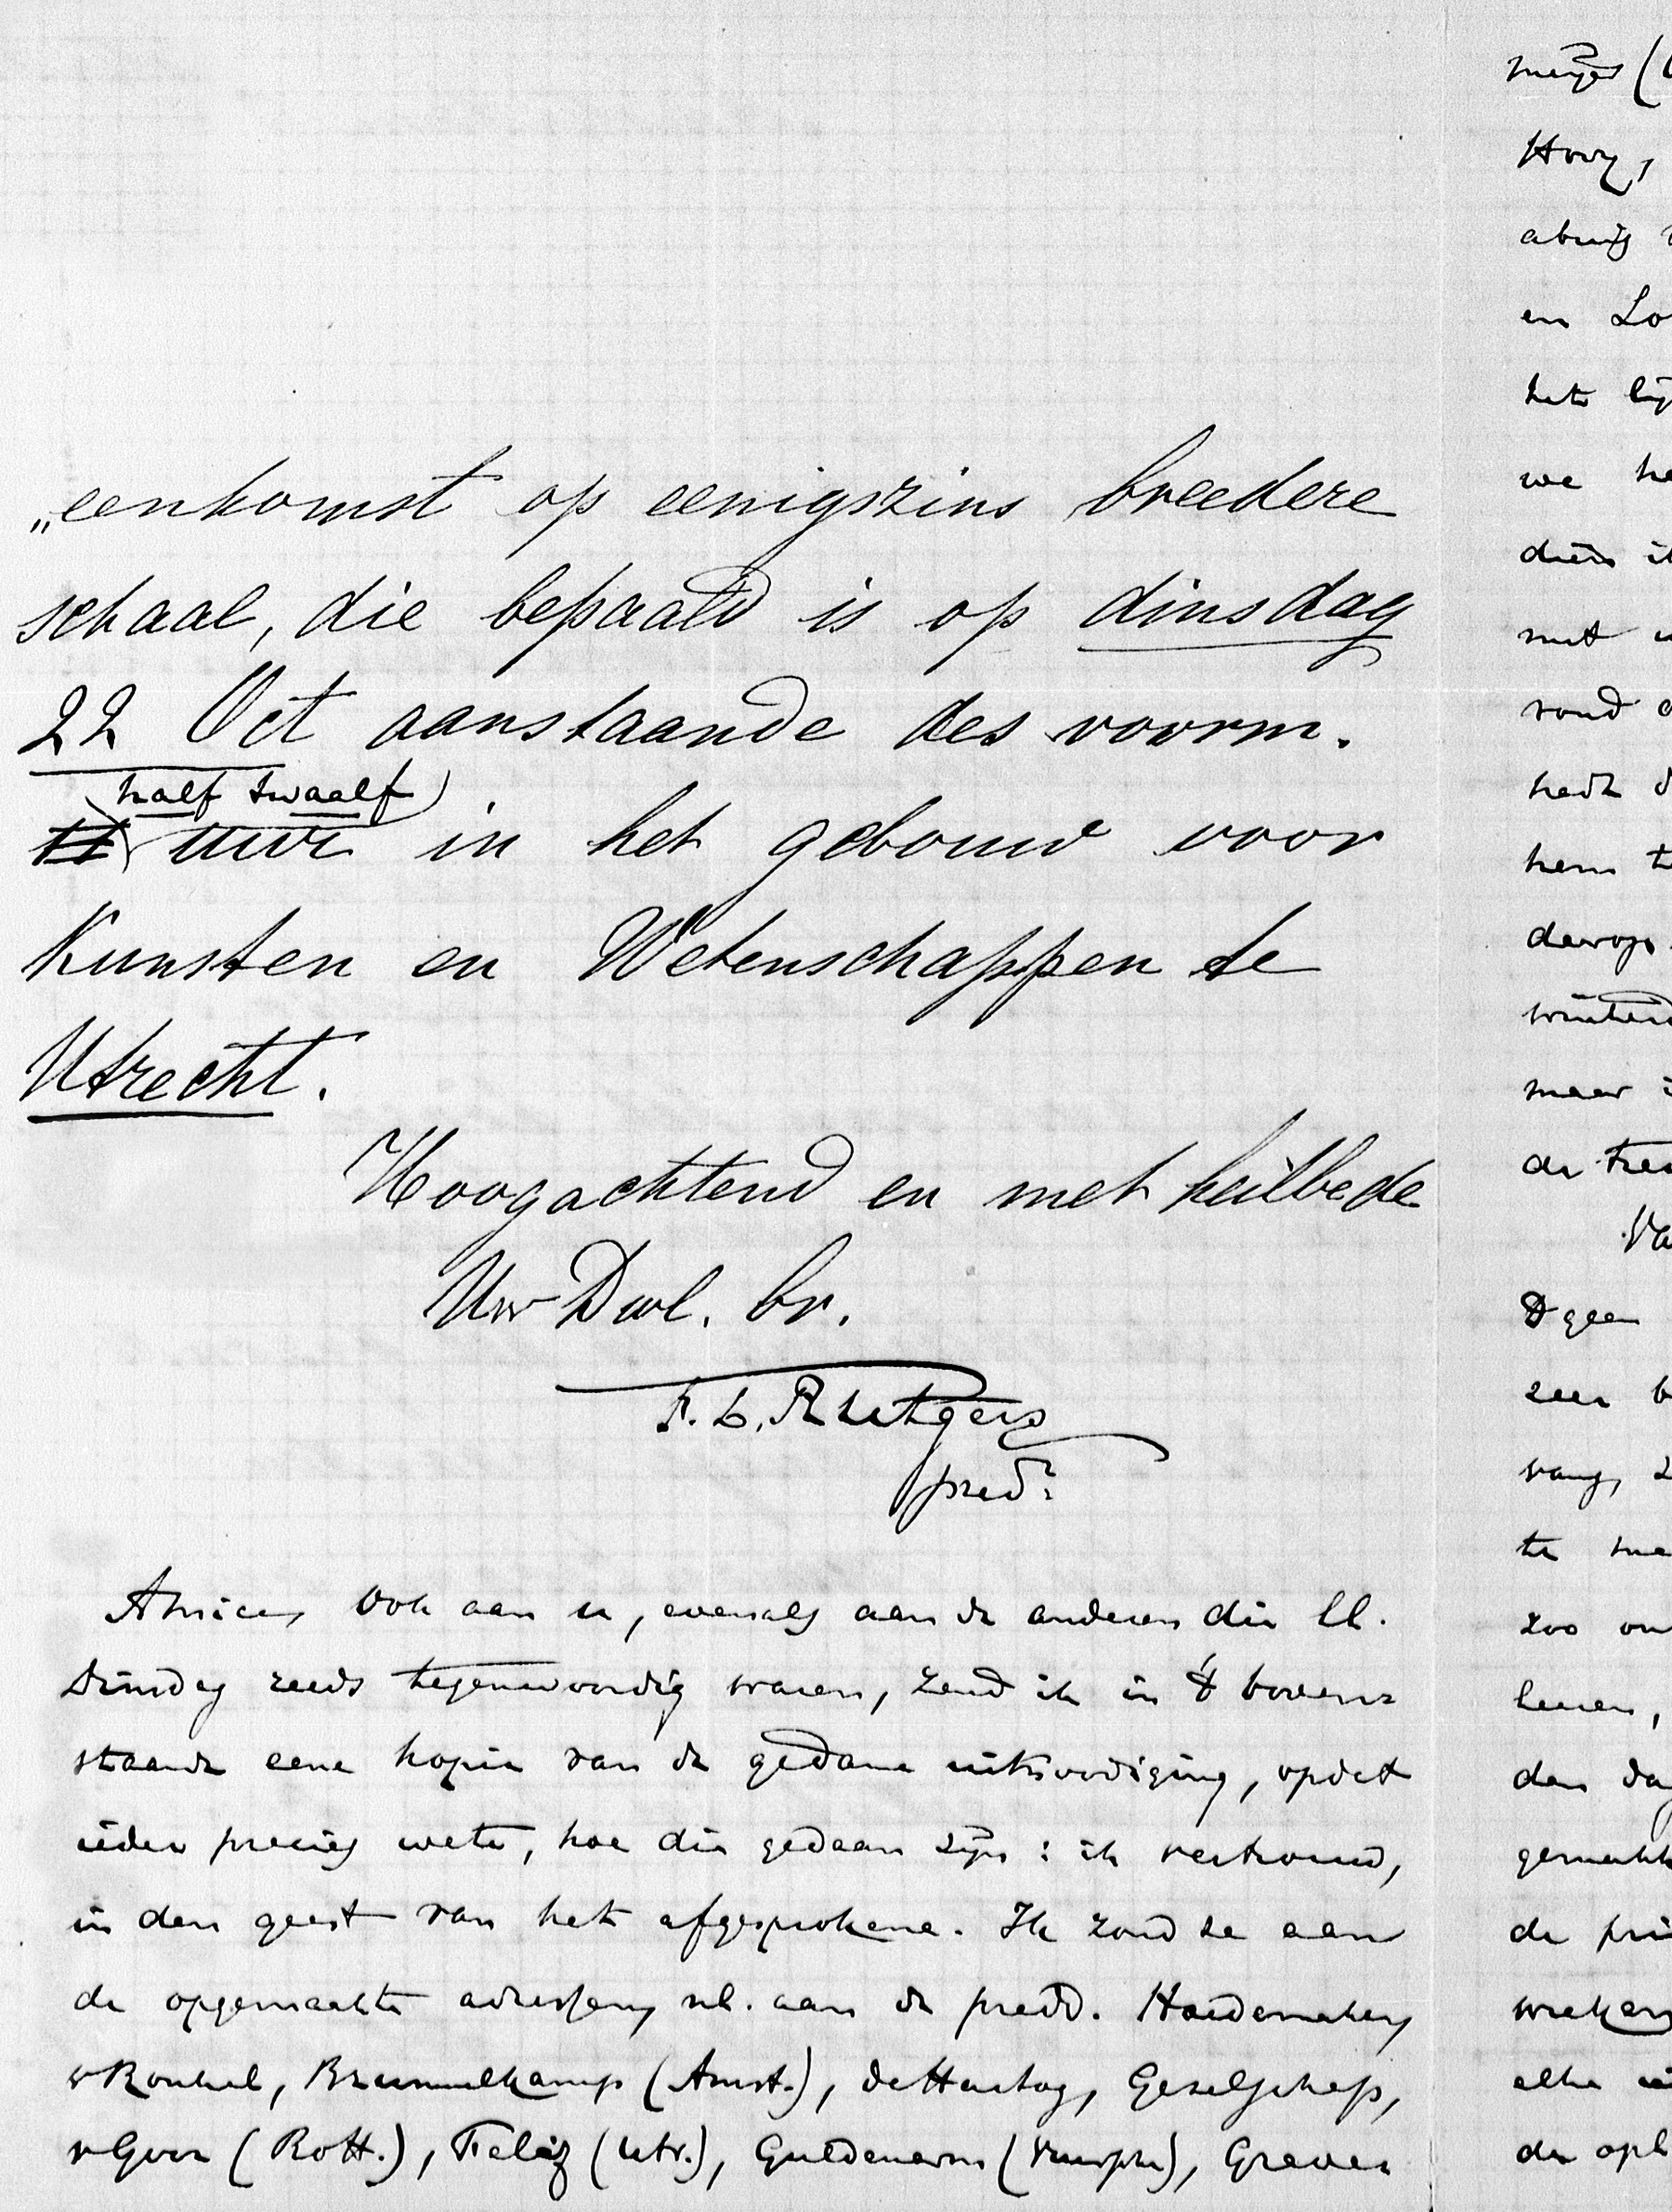 „eenkomst op eenigszins breedere
schaal, die bepaald is op dinsdag
22 Oct aanstaande des voorm.
half twaalf
11 uur in het gebouw voor
Kunsten en Wetenschappen te
Utrecht.
Hoogachtend en met heilbede
Uw Dwl. br.
F. L. Rutgers
pred.
Amice, Ook aan u, evenals aan de anderen die ll.
Dinsdag reeds tegenwoordig waren, zend ik in 't boven-
staande eene kopie van de gedane uitnoodiging, opdat
ieder precies wete, hoe die gedaan zijn: ik vertrouw,
in den geest van het afgesprokene. Ik zond ze aan
de opgemaakte adressen, nl. aan de predd. Hoedemaker,
v Ronkel, Brummelkamp (Amst.), de Hartog, Geselschap,
v Goor (Rott.), Felix (Utr.), Guldenarm ( Greven
meijer (
Hovy,
abuis
en Lo
het lij
we he
dien i
met u
rond
hedt d
hem t
derops.
winterd
maar i
de tree
Va
Dgeen
zeer b
vang, z
te me
zoo on
leenen,
den da
gemakk
de pri
weken
elke
de opk